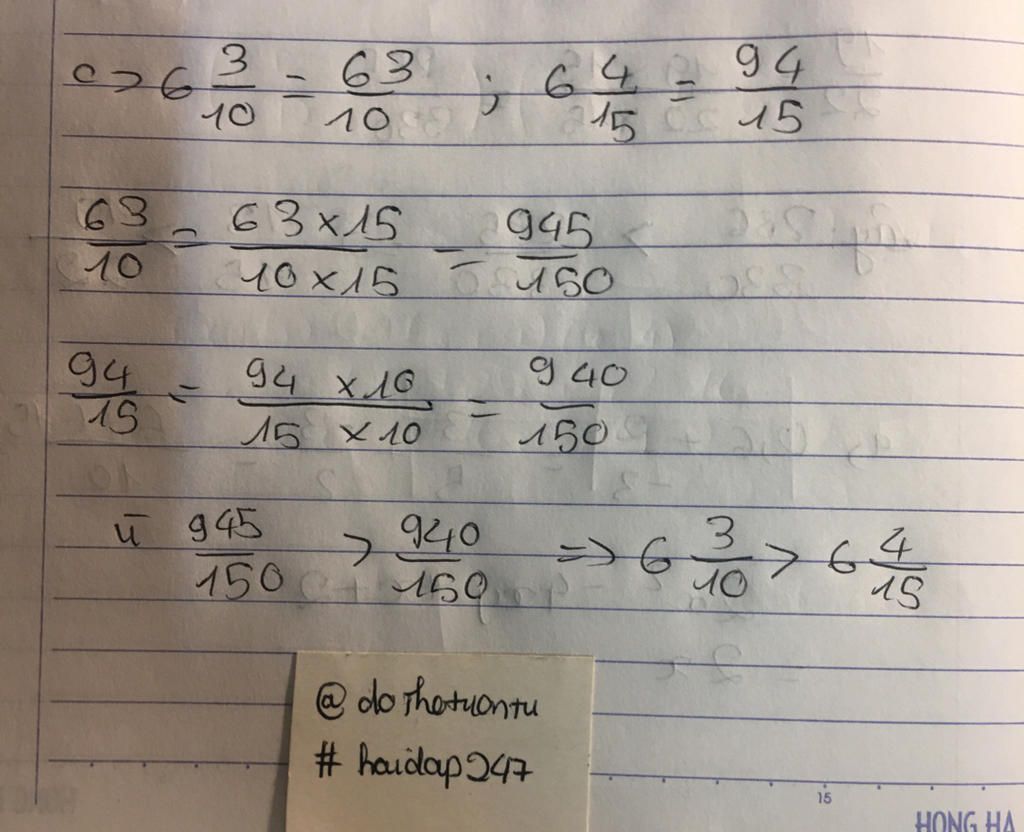 c> 6 3/10 = 63/10 ; 6 4/15 = 94/15
63/10 = 63 x 15/10 x 15 = 945/150
94/15 = 94 x 10/15 x 10 = 940/150
945/150 > 940/150 => 6 3/10 > 6 4/15
# hoidap247
15
HONG HA